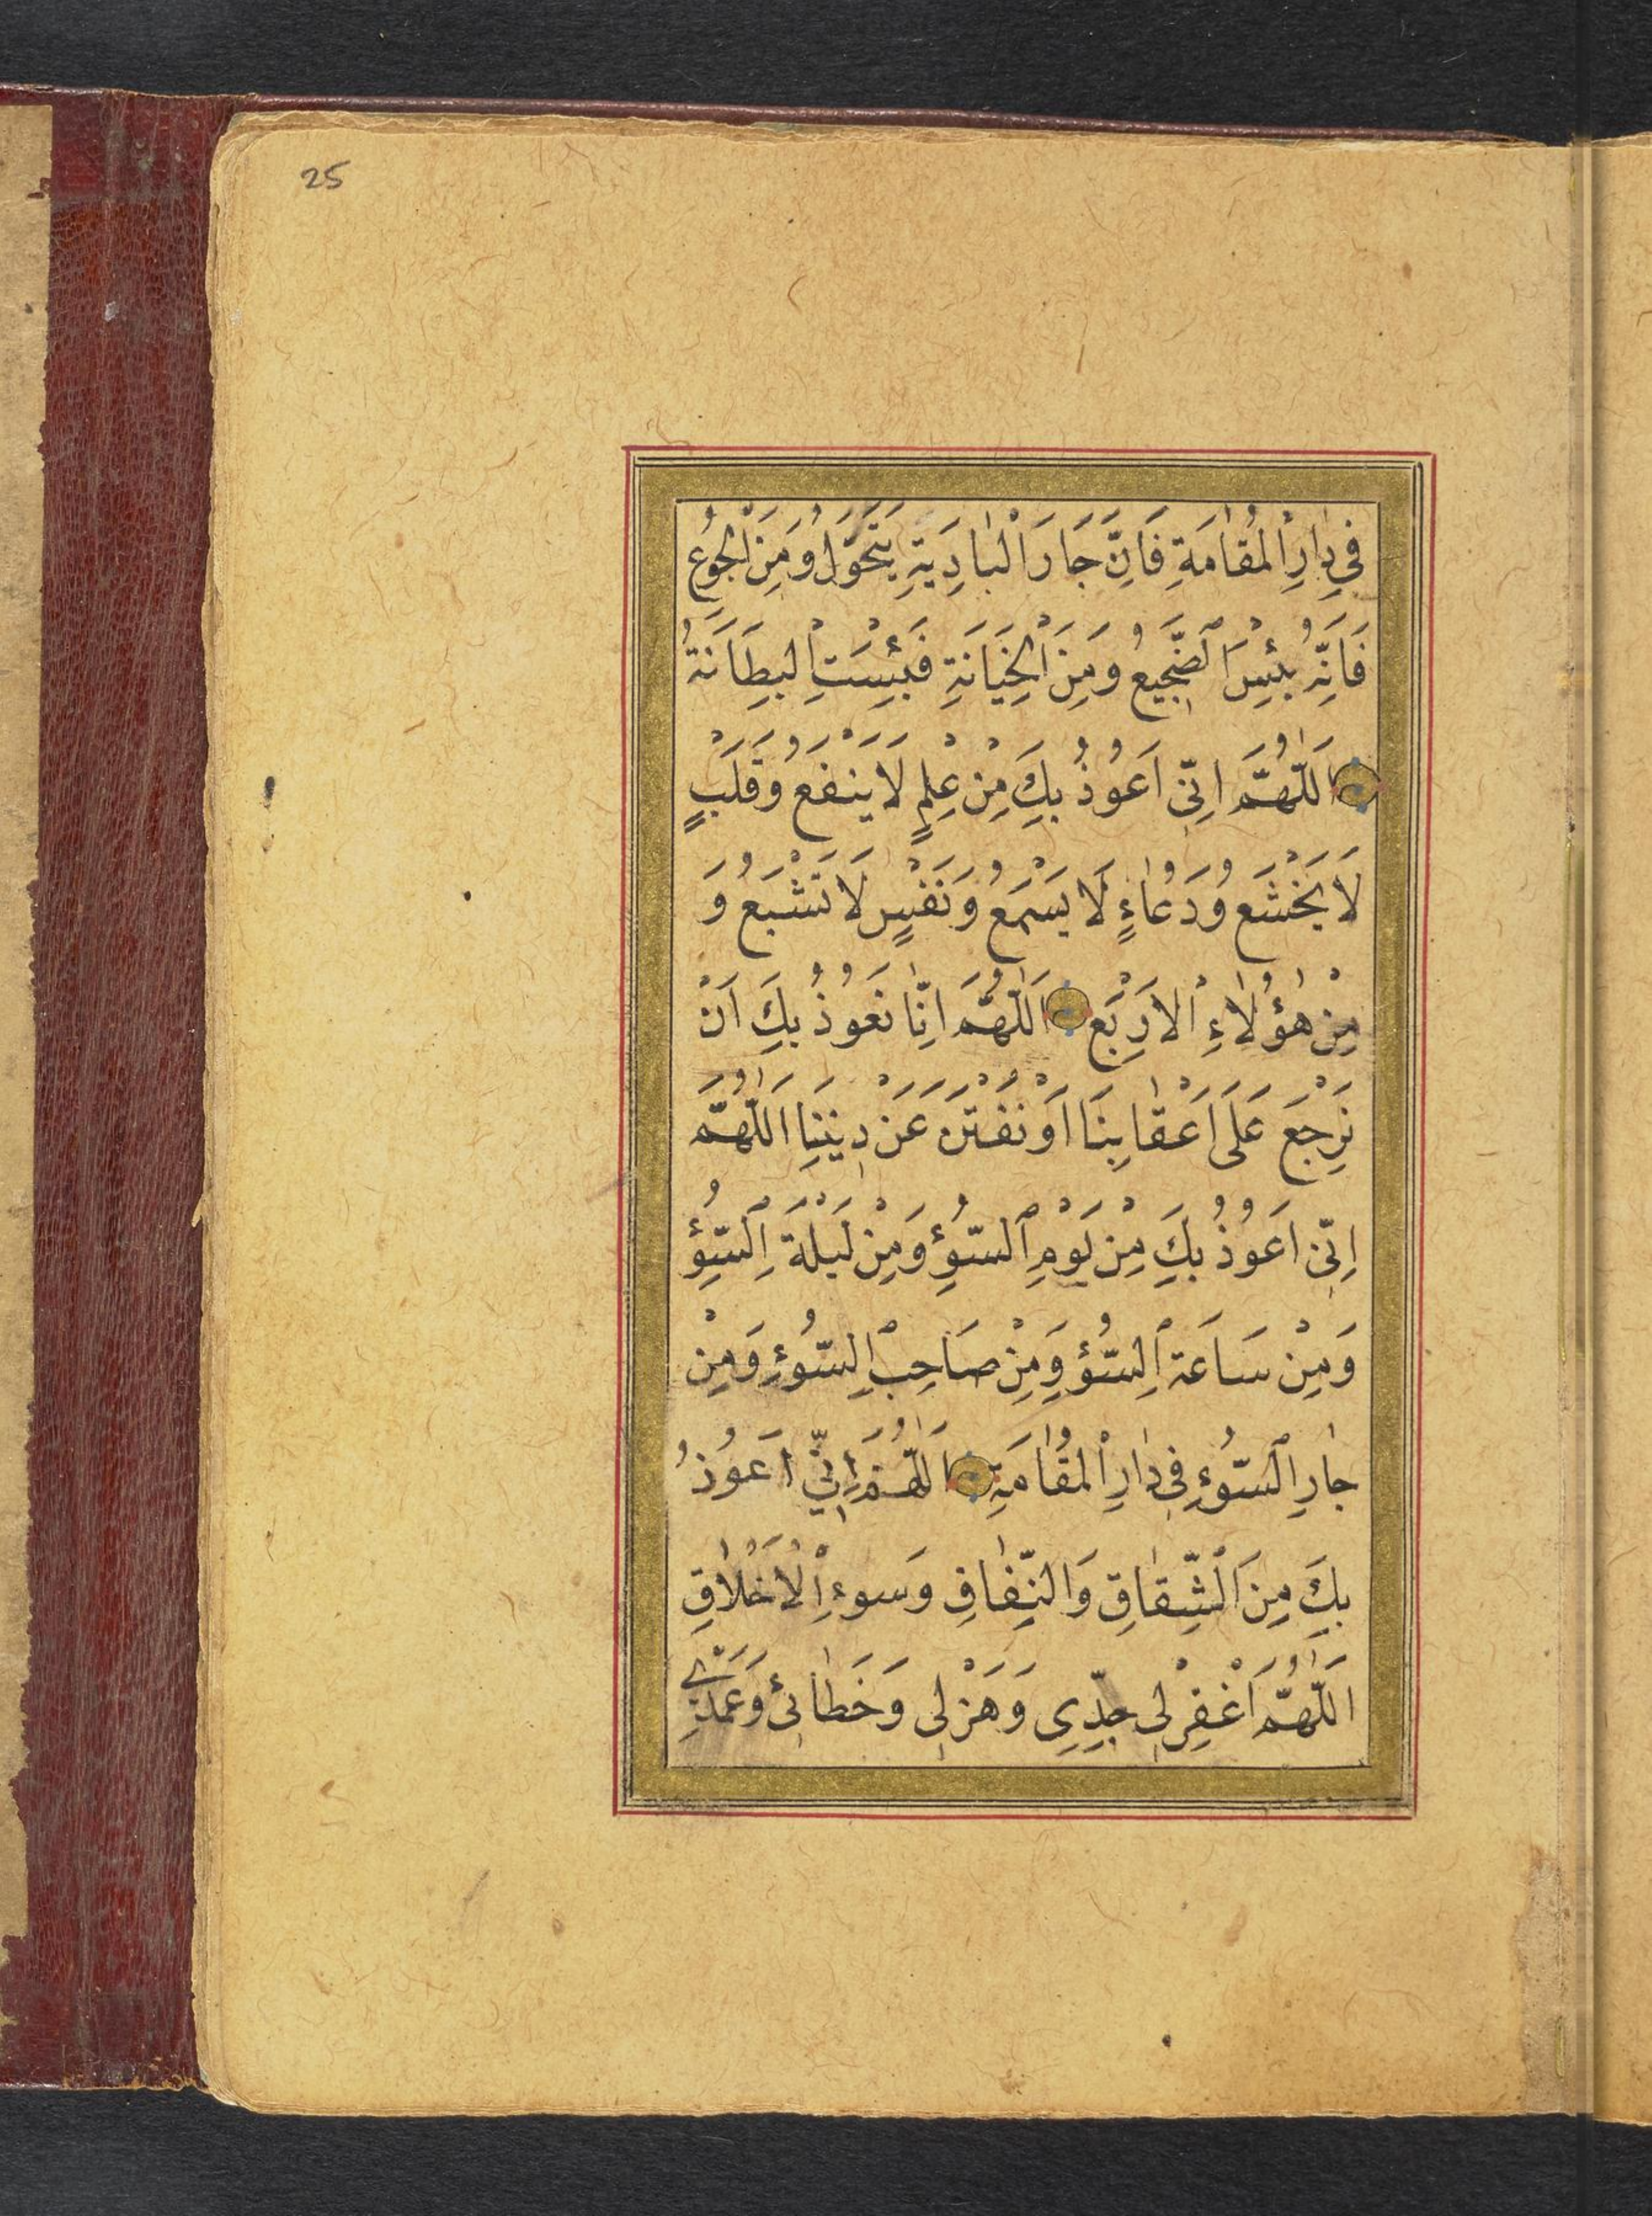 25
فِي دَارِ الْمُقَامَةِ فَاِنَّ جَارَ الْبَادِيَةِ يَتَحَوَّلُ وَمِنَ الْجُوعِ
فَاِنَّهُ بِئْسَ الضَّجِيعُ وَمِنَ الْخِيَانَةِ فَبِئْسَتِ الْبِطَانَةُ
اَللّٰهُمَّ اِنِّي اَعُوذُ بِكَ مِنْ عِلْمٍ لَا يَنْفَعُ وَقَلْبٍ
لَا يَخْشَعُ وَدُعَاءٍ لَا يُسْمَعُ وَنَفْسٍ لَا تَشْبَعُ وَ
مِنْ هٰؤُلَاءِ الْاَرْبَعِ اَللّٰهُمَّ اِنَّا نَعُوذُ بِكَ اَنْ
نَرْجِعَ عَلَى اَعْقَابِنَا اَوْ نُفْتَنَ عَنْ دِينِنَا اَللّٰهُمَّ
اِنِّي اَعُوذُ بِكَ مِنْ يَوْمِ السُّوْءِ وَمِنْ لَيْلَةِ السُّوْءِ
وَمِنْ سَاعَةِ السُّوْءِ وَمِنْ صَاحِبِ السُّوْءِ وَمِنْ
جَارِ السُّوءِ فِي دَارِ الْمُقَامَةِ اَللّٰهُمَّ اِنِّي اَعُوذُ
بِكَ مِنَ الشِّقَاقِ وَالنِّفَاقِ وَسُوءِ الْاَخْلَاقِ
اَللّٰهُمَّ اغْفِرْ لِي جِدِّي وَهَزْلِي وَخَطَائِي وَعَمْدِي